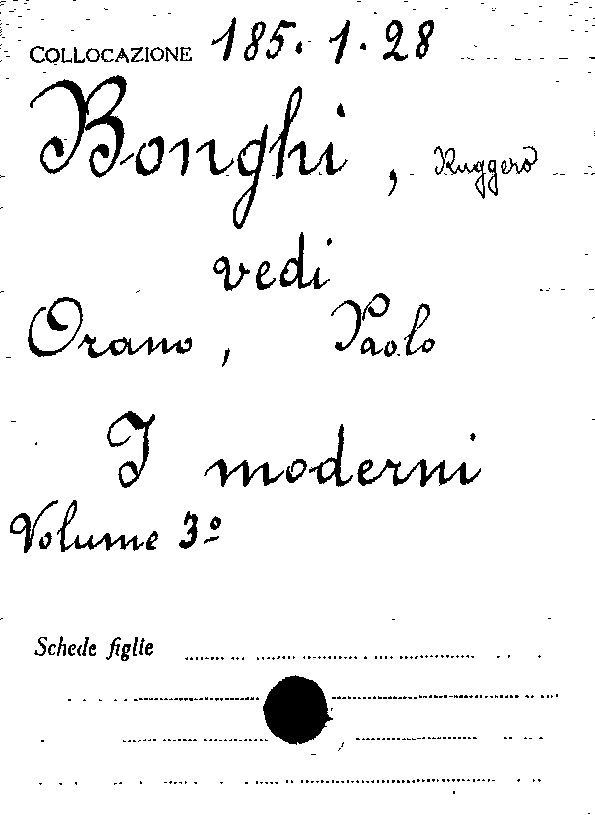 COLLOCAZIONE 185. 1. 28
Bonghi, Ruggero
vedi
Orano, Paolo
I moderni
Volume 3º
Schede figlie